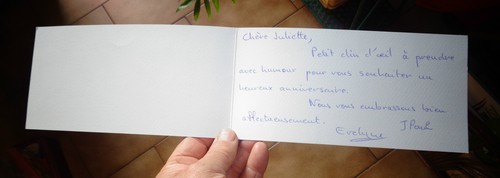 Chère Juliette,
Petit clin d'œil à prendre
avec humour pour vous souhaiter un
heureux anniversaire.
Nous vous embrassons bien
affectueusement.
Evelyne J Paul